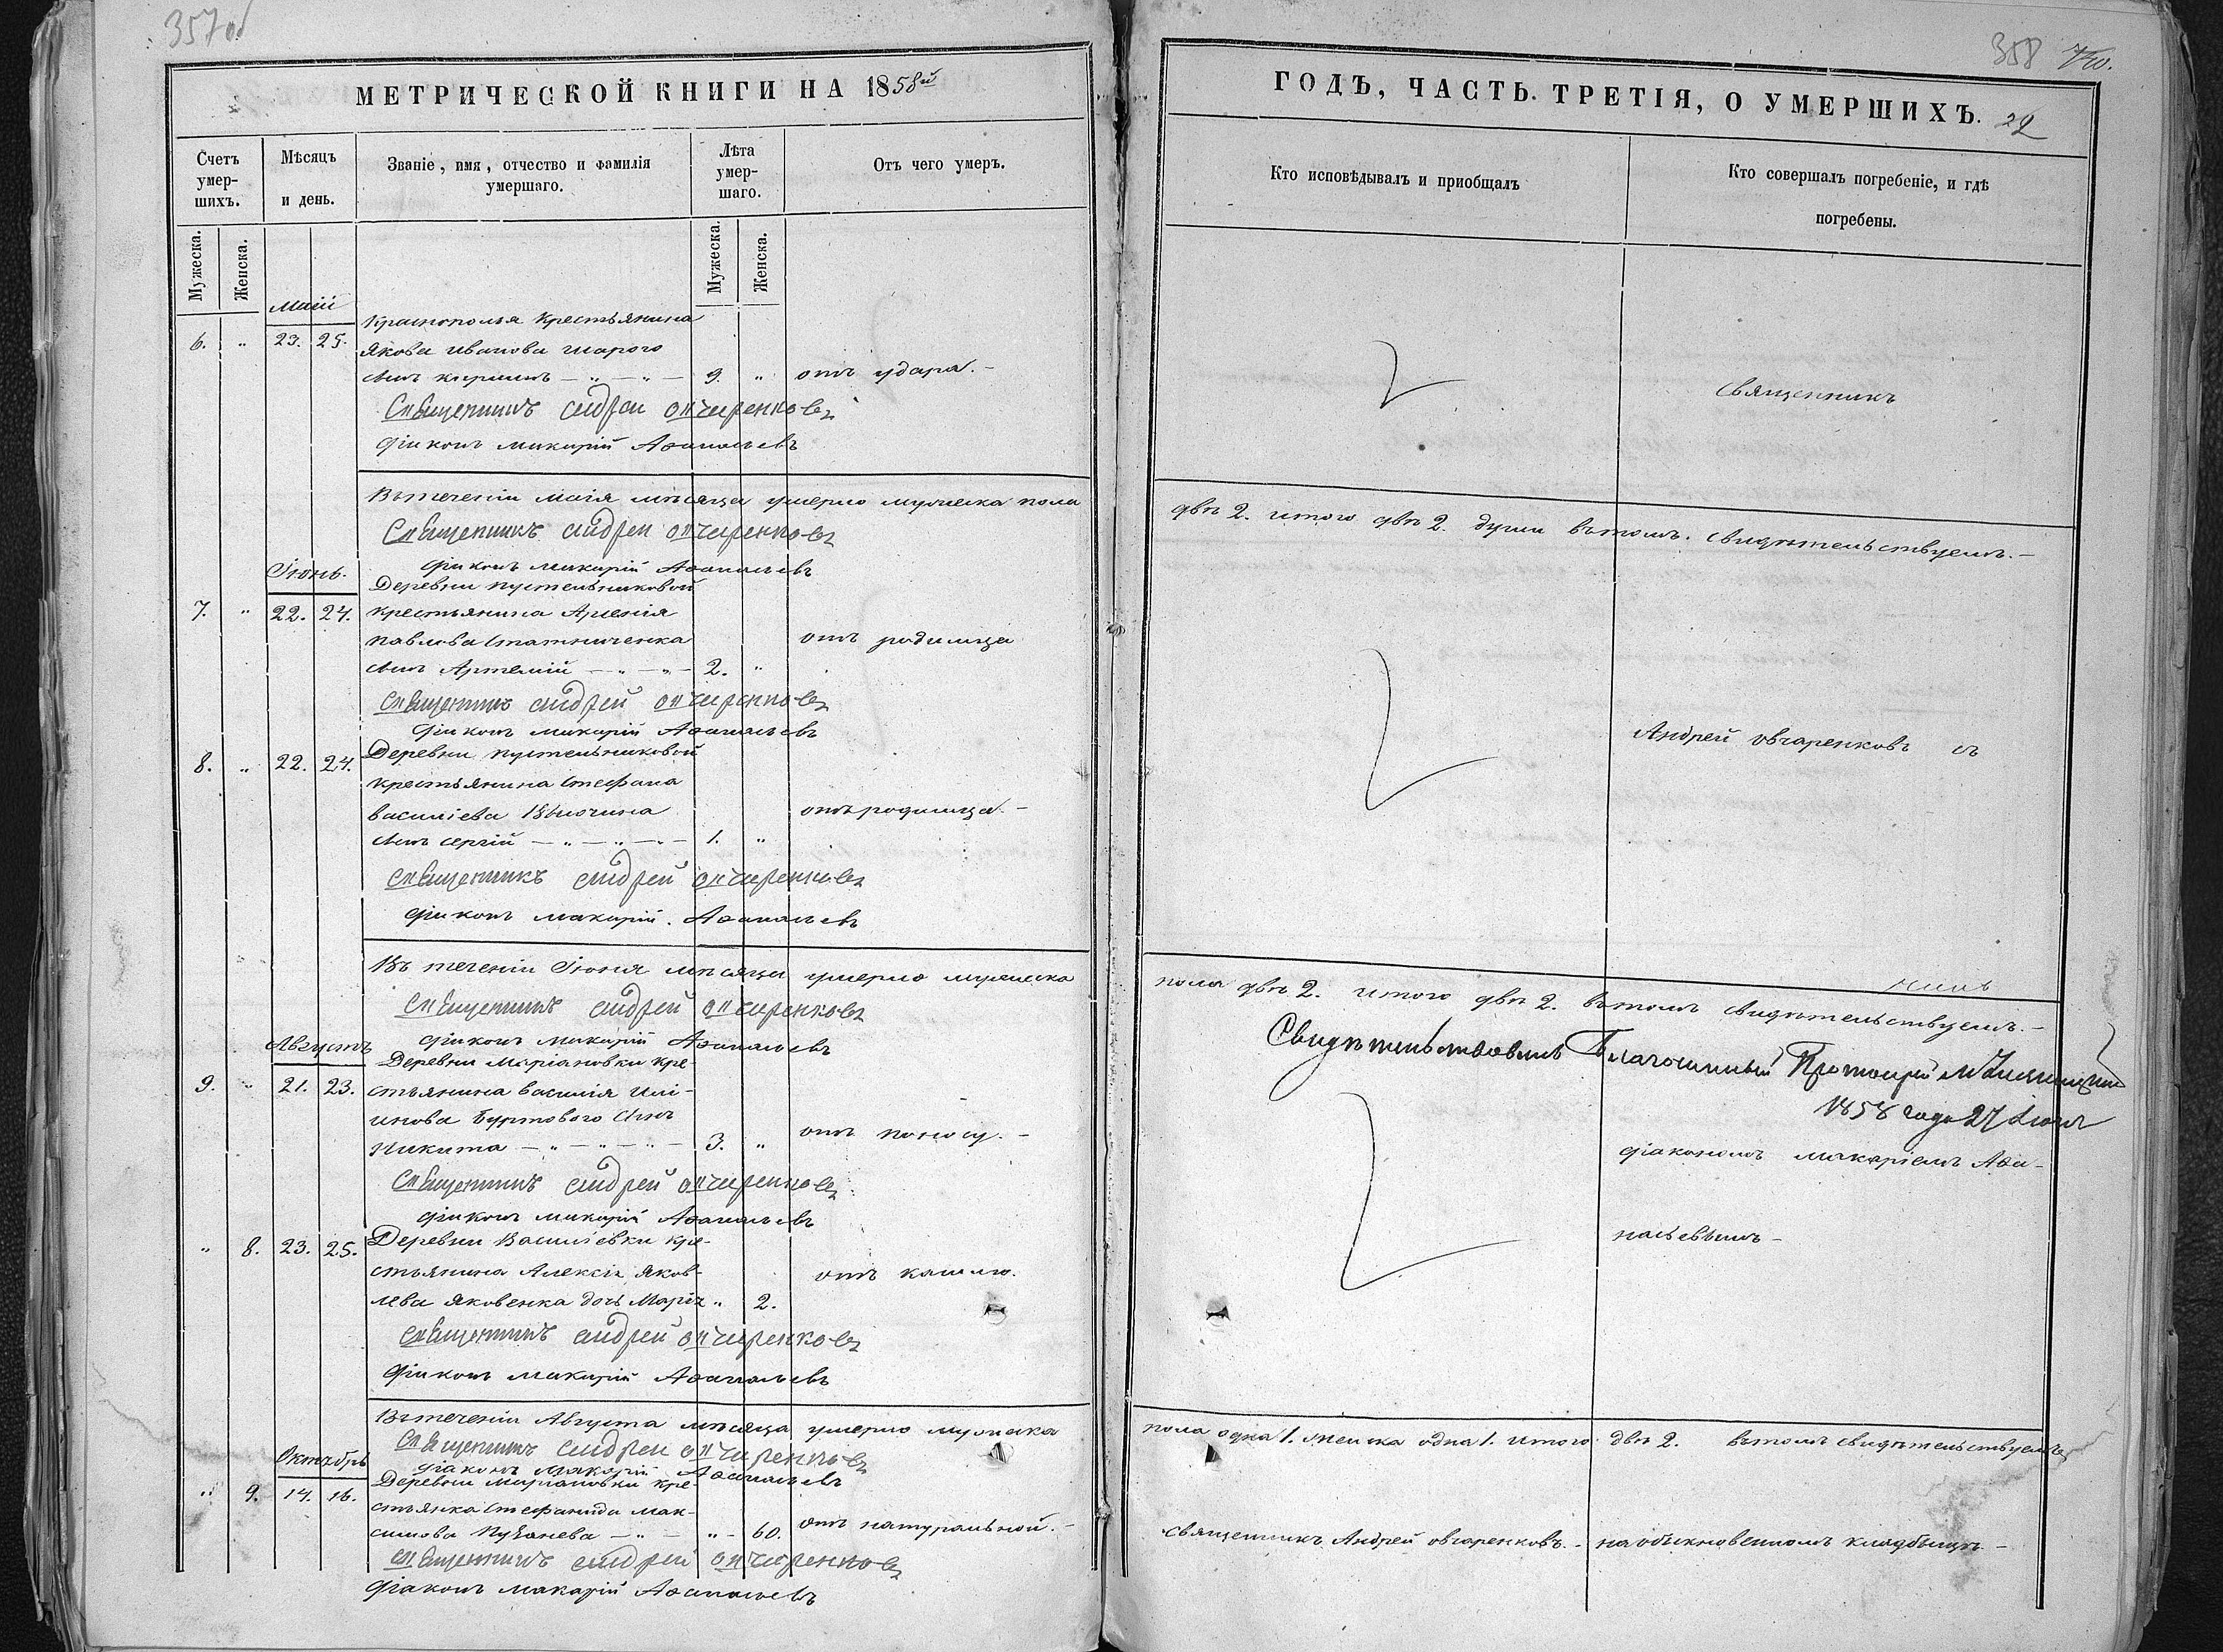 357 об
МЕТРИЧЕСКОЙ КНИГИ НА 1858й
Счетъ умер-шихъ.
Мѣсяцъ и день.
Званіе, имя, отчество и фамилія умершаго.
Лѣта умер-шаго.
Отъ чего умеръ.
Мужеска.
Женска.
Мужеска.
Женска.
Маій
Краснополья Крестьянина
6. „ 23. 25. Якова Иванова
сынъ — „ — „ — 9. „ отъ удара. –
Священникъ Андрей Овчаренковъ
Діаконъ Макарій Аѳанасьевъ
Въ теченіи Маія мѣсяца умерло мужеска пола
Священникъ Андрей Овчаренковъ
Діаконъ Макарій Аѳанасьевъ
Іюнь.
Деревни Пустельниковой
7. „ 22. 24. крестьянина Арсенія
Павлова отъ родимца
сынъ Артемій — „ — „ — 2. „
Священникъ Андрей Овчаренковъ
Діаконъ Макарій Аѳанасьевъ
Деревни Пустельниковой
8. „ 22. 24. крестьянина Стефана
Василіева отъ родимца. –
сынъ Сергій — „ — „ — „ — 1. „
Священникъ Андрей Овчаренковъ
Діаконъ Макарій Аѳанасьевъ
Въ теченіи Іюня мѣсяца умерло мужеска
Священникъ Андрей Овчаренковъ
Діаконъ Макарій Аѳанасьевъ
Августъ
Деревни Маріановки кре-
9. „ 21. 23. стьянина Василія Илі-
инова Буртового сынъ
Никита — „ — „ — „ — 3. „ отъ поносу. –
Священникъ Андрей Овчаренковъ
Діаконъ Макарій Аѳанасьевъ
Деревни Василіевки кре-
„ 8. 23. 25. стьянина Алексія Яков-
лева Яковенка дочь Марія „ 2. отъ кашлю.
Священникъ Андрей Овчаренковъ
Діаконъ Макарій Аѳанасьевъ
Въ теченіи Августа мѣсяца умерло мужеска
Священникъ Андрей Овчаренковъ
Діаконъ Макарій Аѳанасьевъ
Октябрь
Деревни Маріановки кре-
„ 9. 14. 16. стьянка Стефанида Мак-
симова — „ — „ – 60. отъ натуральной. –
Священникъ Андрей Овчаренковъ
Діаконъ Макарій Аѳанасьевъ
358
ГОДЪ, ЧАСТЬ ТРЕТІЯ, О УМЕРШИХЪ.
Кто исповѣдывалъ и приобщалъ
Кто совершалъ погребеніе, и гдѣ погребены.
Священникъ
двѣ 2. итого двѣ 2. души въ томъ свидѣтельствуемъ. –
Андрей Овчаренковъ съ
пола двѣ 2. итого двѣ 2. въ томъ свидѣтельствуемъ. –
Свидѣтельствовалъ Благочинный Протоіерей
1858 года 27 Іюня
діакономъ Макаріемъ Аѳа-
насьевымъ –
пола одна 1. женска одна 1. итого двѣ 2. въ томъ свидѣтельствуемъ
Священникъ Андрей Овчаренковъ. – на обыкновенномъ кладбищѣ –